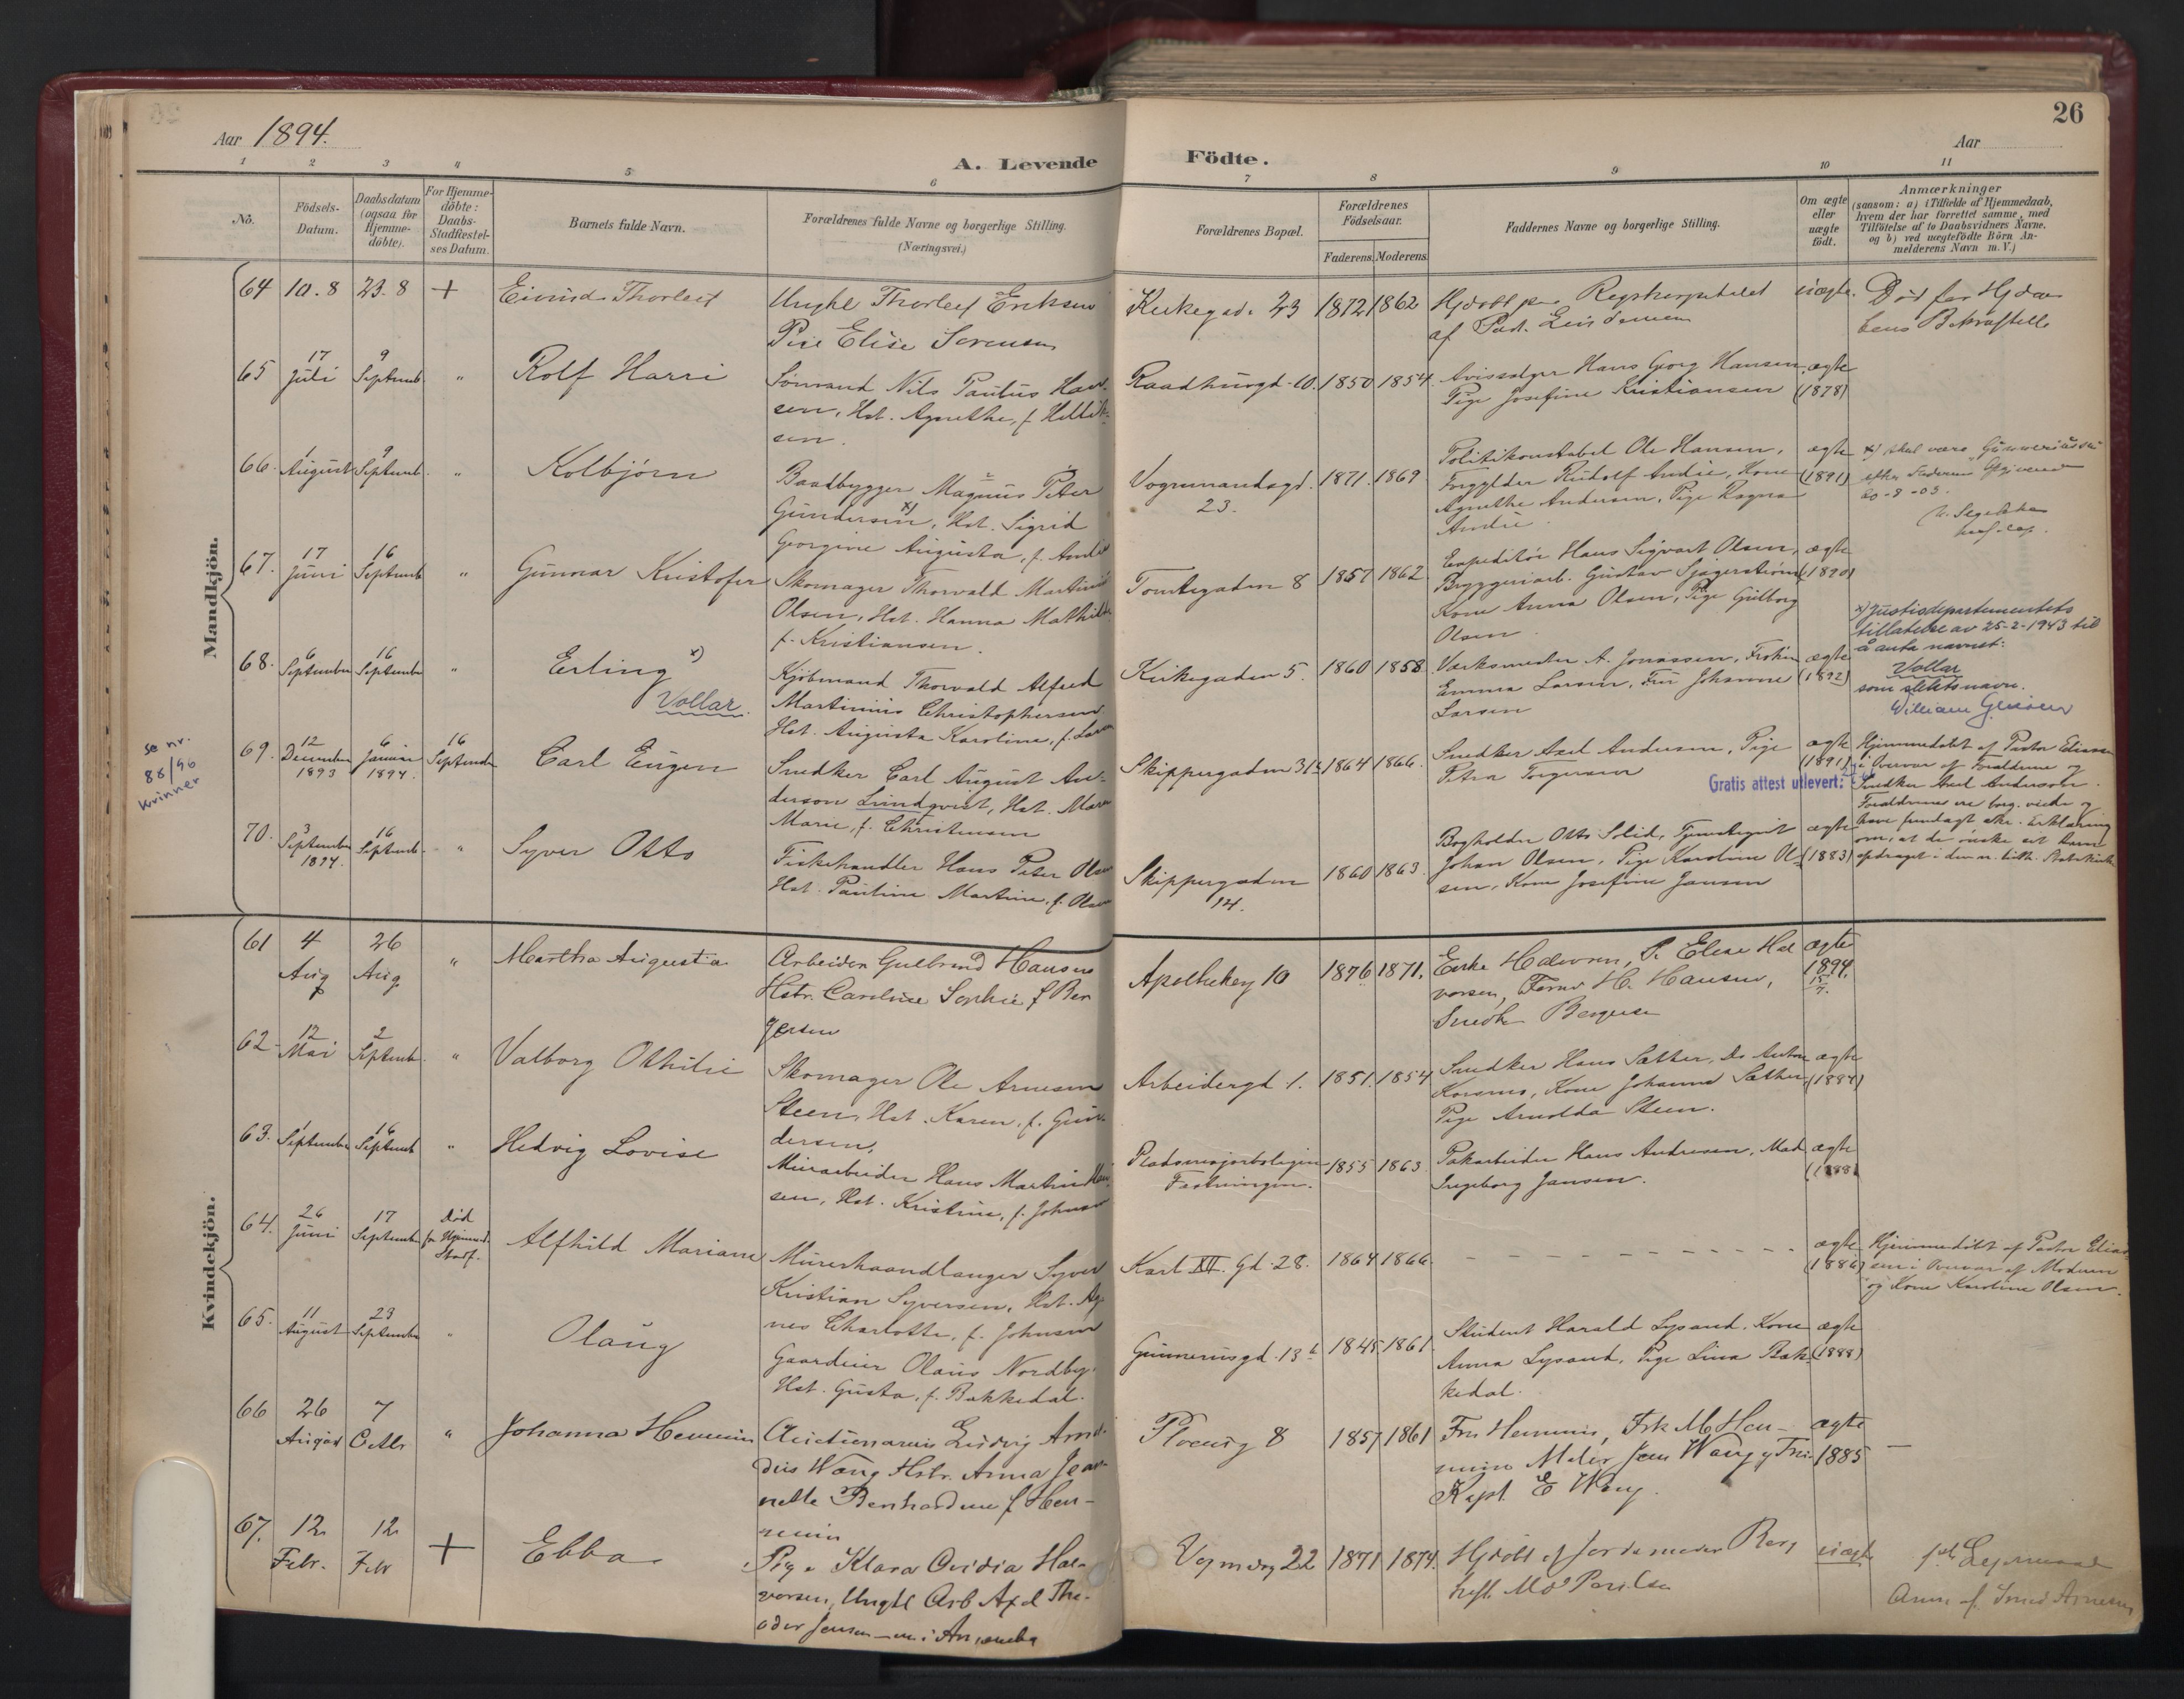 26
Aar 1894.
Aar
A. Levende Födte.
1 2 3 4 5 6 7 8 9 10 11
No.
Födsels-Datum.
Daabsdatum (ogsaa for Hjemme-döbte).
For Hjemme-döbte: Daabs-Stadfæstel-ses Datum.
Barnets fulde Navn.
Forældrenes fulde Navne og borgerlige Stilling.
(Næringsvei.)
Forældrenes Bopæl.
Forældrenes Födselsaar.
Faderens. Moderens.
Faddernes Navne og borgerlige Stilling.
Om ægte eller uægte födt.
Anmærkninger
(saasom: a) i Tilfælde af Hjemmedaab,
hvem der har forrettet samme, med
Tilföielse af to Daabsvidners Navne.
og b) ved uægtefödte Börn An-
melderens Navn m.V.)
Mandkjön.
64 10.8 23.8 + Eivind Thorleif
Ungkl Thorleif Eriksen
Pige Elise Sorensen
Kirkegade 23 1872 1862
Hjdöbt paa Rigshospitalet
af Past.
uægte.
Död før Hjdaa
bens Bekræftelse
65 17 Juli 9 Septemb. " Rolf Harri
Sömand Nils Paulus Han
sen, Hst. Agnethe, f. Hellik
sen.
Raadhusgd. 10. 1850 1854
Avissælger Hans Georg Hansen,
Pige Josefine Kristiansen
ægte (1878)
66. 1 August 9 Septemb. " Kolbjörn
Baadbygger Magnus Peter
Gundersen x), Hst. Sigrid
Georgine Augusta, f. André
Vognmandsgd. 23. 1871. 1869
Politikonstabel Ole Hansen,
Forgylder Rudolf André, Kone
Agnethe Andersen, Pige Ragna
André.
ægte (1891)
x) skal være Gunnerius
efter Faderens Opgivende
20-9-03.
67. 17 Juni 16 Septemb " Gunnar Kristofer
Skomager Thorvald Martinius
Olsen, Hst. Hanna Mathilde
f. Kristiansen.
Tomtegaden 8 1857 1862
Expeditör Hans Sigvart Olsen,
Bryggeriarb. Gustav Sjagerström
Kone Anna Olsen, Pige Gulborg
Olsen
ægte (1890)
68. 6 September 16 Septembr " Erling x)
Vollar.
Kjöbmand Thorvald Alfred
Martinius Christophersen
Hst. Augusta Karoline, f. Larsen
Kirkegaden 5. 1860 1858
Værksmester A. Jonassen, Fröken
Emma Larsen, Fru Johanne
Larsen
ægte (1892)
x) Justisdepartementets
tillatelse av 25-2-1943 til
å anta navnet:
Vollar
som slektsnavn.
se nr.
88/96
kvinner
69. 12 December 1893 6 Januar 1894. 16 September Carl Eugen
Snedker Carl August An-
derson Lundqvist, Hst. Maren
Marie, f. Christensen
Skippergaden 31b 1864 1866.
Snedker Axel Andersen, Pige
Petra Torgersen
ægte (1891)
Gratis attest utlevert:
Hjemmedöbt af Pastor Eliassen
i Overvær af Forældrene og
Snedker Axel Anderson.
Forældrene ere borg. viede og
have fremlagt skr. Erklæring
om, at de önske sit Barn
opdraget i den ev. luth. Statskirke
70. 3 September 1894. 16 Septemb. " Syver Otto
Fiskehandler Hans Peter Olsen
Hst. Pauline Martine, f. Olsen
Skippergaden 14. 1860 1863.
Bogholder Otto Solid,
Johan Olsen, Pige Karoline Ol-
sen, Kone Josefine Jansen
ægte (1883)
Kvindekjön.
61 4 Aug 26 Aug. " Martha Augusta
Arbeider Gulbrand Hansen
Hstr. Caroline Sophie f Ber
gersen
Apothekerg 10 1876 1871.
Enke Halvorsen, P. Elise Hal
vorsen, H. Hansen,
Snedk Bergersen
ægte 1894. 15/7.
62. 12 Mai 2 Septemb. " Valborg Othilie
Skomager Ole Arnesen
Steen, Hst. Karen, f. Gun-
dersen,
Arbeidergd. 1. 1851. 1854
Snedker Hans Sæther, Do Anton
Korsmo, Kone Johanne Sæther,
Pige Arnolda Steen.
ægte (1884)
63. 1 September 16 Septemb " Hedvig Lovise
Murarbeider Hans Martin Han
sen, Hst. Kristine, f. Johnsen
Pladsmajorboligen
Fæstningen. 1855 1863.
Pakarbeider Hans Andresen, Mad
Ingeborg Jansen.
ægte (1888
64. 26 Juni 17 September Död før Hjemmed. Stadf. Alfhild Mariane
Murerhaandlanger Syver
Kristian Syversen, Hst. Ag
nes Charlotte, f. Johnsen
Karl XII. Gd. 28. 1864 1866.
ægte (1886)
Hjemmedöbt af Pastor Elias
sen i Overvær af Moderen
og Kone Karoline Olsen.
65. 11 August 23 September " Olaug
Gaardeier Olaus Nordby.
Hst. Gusta, f. Bakkedal.
Gunnerusgd. 13b 1845 1861.
Student Harald Lysand. Kone
Anna Lysand, Pige Lina Bak-
kedal.
ægte (1888)
66 26 August 7 Octbr " Johanna Hemmin
Auctionarius Ludvig Amn-
dus Wang Hstr. Anna Jean-
nette Bernhardine f Hem-
min
Ploensg 8 1857 1861
Fru Hemmin, Frk M Hem-
min Jens Wang y Fru
Kapt. E Wang.
ægte 1885 —
67. 12 Febr. 12 Febr + Ebba
Pige Klara Ovidia Hal-
vorsen, Ungkl Arb Axel The-
odor Jensen
Vognmdsg 22 1871 1874.
Hjdöbt af Jordemoder Berg
uægte